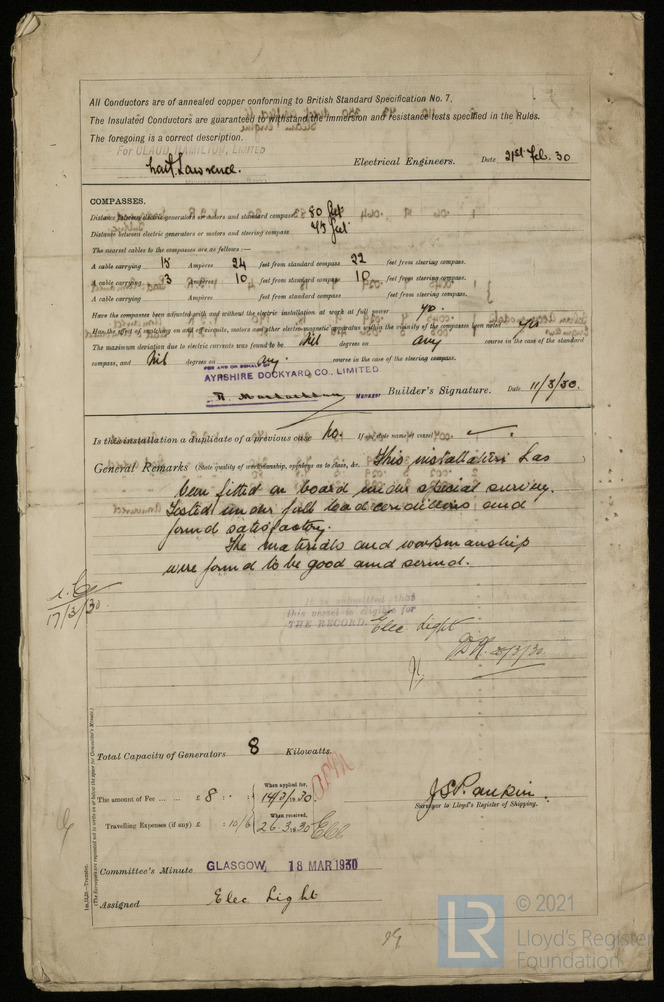 All Conductors are of annealed copper conforming to British Standard Specification No. 7.
The Insulated Conductors are guaranteed to withstand the immersion and resistance tests specified in the Rules.
The foregoing is a correct description.
For CLAUD HAMILTON, LIMITED
Lawrence. Electrical Engineers. Date 21st Feb. 30
COMPASSES.
Distance between electric generators or motors and standard compass 80 feet
Distance between electric generators or motors and steering compass 75 feet
The nearest cables to the compasses are as follows:—
A cable carrying 15 Ampères 24 feet from standard compass 22 feet from steering compass.
A cable carrying 3 Ampères 10 feet from standard compass 10 feet from steering compass.
A cable carrying Ampères feet from standard compass feet from steering compass.
Have the compasses been adjusted with and without the electric installation at work at full power yes.
Has the effect of switching on and off circuits, motors and other electro-magnetic apparatus within the vicinity of the compasses been noted yes
The maximum deviation due to electric currents was found to be Nil degrees on any course in the case of the standard
compass, and Nil degrees on any course in the case of the steering compass.
FOR AND ON BEHALF OF
AYRSHIRE DOCKYARD CO., LIMITED
MANAGER Builder's Signature. Date 11/3/30.
Is this installation a duplicate of a previous case No. If so, state name of vessel
General Remarks (State quality of workmanship, opinions as to class, &c. This installation has
been fitted on board under special survey.
Tested under full load conditions and
found satisfactory.
The materials and workmanship
were found to be good and sound.
17/3/30
It is submitted that
this vessel is eligible for
THE RECORD. Elec Light
Total Capacity of Generators 8 Kilowatts.
The amount of Fee ... ... £ 8 : : When applied for, 14/3/1930.
Travelling Expenses (if any) £ : 10/6 When received, 26.3.1930
J S Rankin.
Surveyor to Lloyd's Register of Shipping.
Committee's Minute GLASGOW, 18 MAR 1930
Assigned Elec Light
(The Surveyors are requested not to write on or below the space for Committee's Minute.)
LR © 2021
Lloyd's Register
Foundation